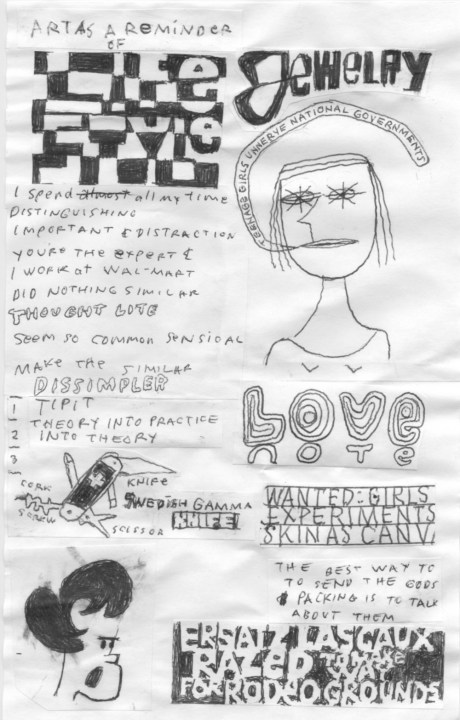 ART AS A REMINDER
OF
LIFE
I SPEND ALMOST ALL MY TIME
DISTINGUISHING
IMPORTANT & DISTRACTION
YOU'RE THE EXPERT &
I WORK AT WAL-MART
DID NOTHING SIMILAR
THOUGHT LITE
SEEM SO COMMON SENSICAL
MAKE THE SIMILAR
DISSIMPLER
1 TIPIT
THEORY INTO PRACTICE
2 INTO THEORY
3
CORK
SCREW
KNIFE
SWEDISH GAMMA
KNIFE!
SCISSOR
JEWELRY
TEENAGE GIRLS UNNERVE NATIONAL GOVERNMENTS
LOVE
NOTE
WANTED: GIRLS
EXPERIMENTS
SKIN AS CANV
THE BEST WAY TO
TO SEND THE GODS
PACKING IS TO TALK
ABOUT THEM
ERSATZ LASCAUX
RAZED TO MAKE
WAY
FOR RODEO GROUNDS